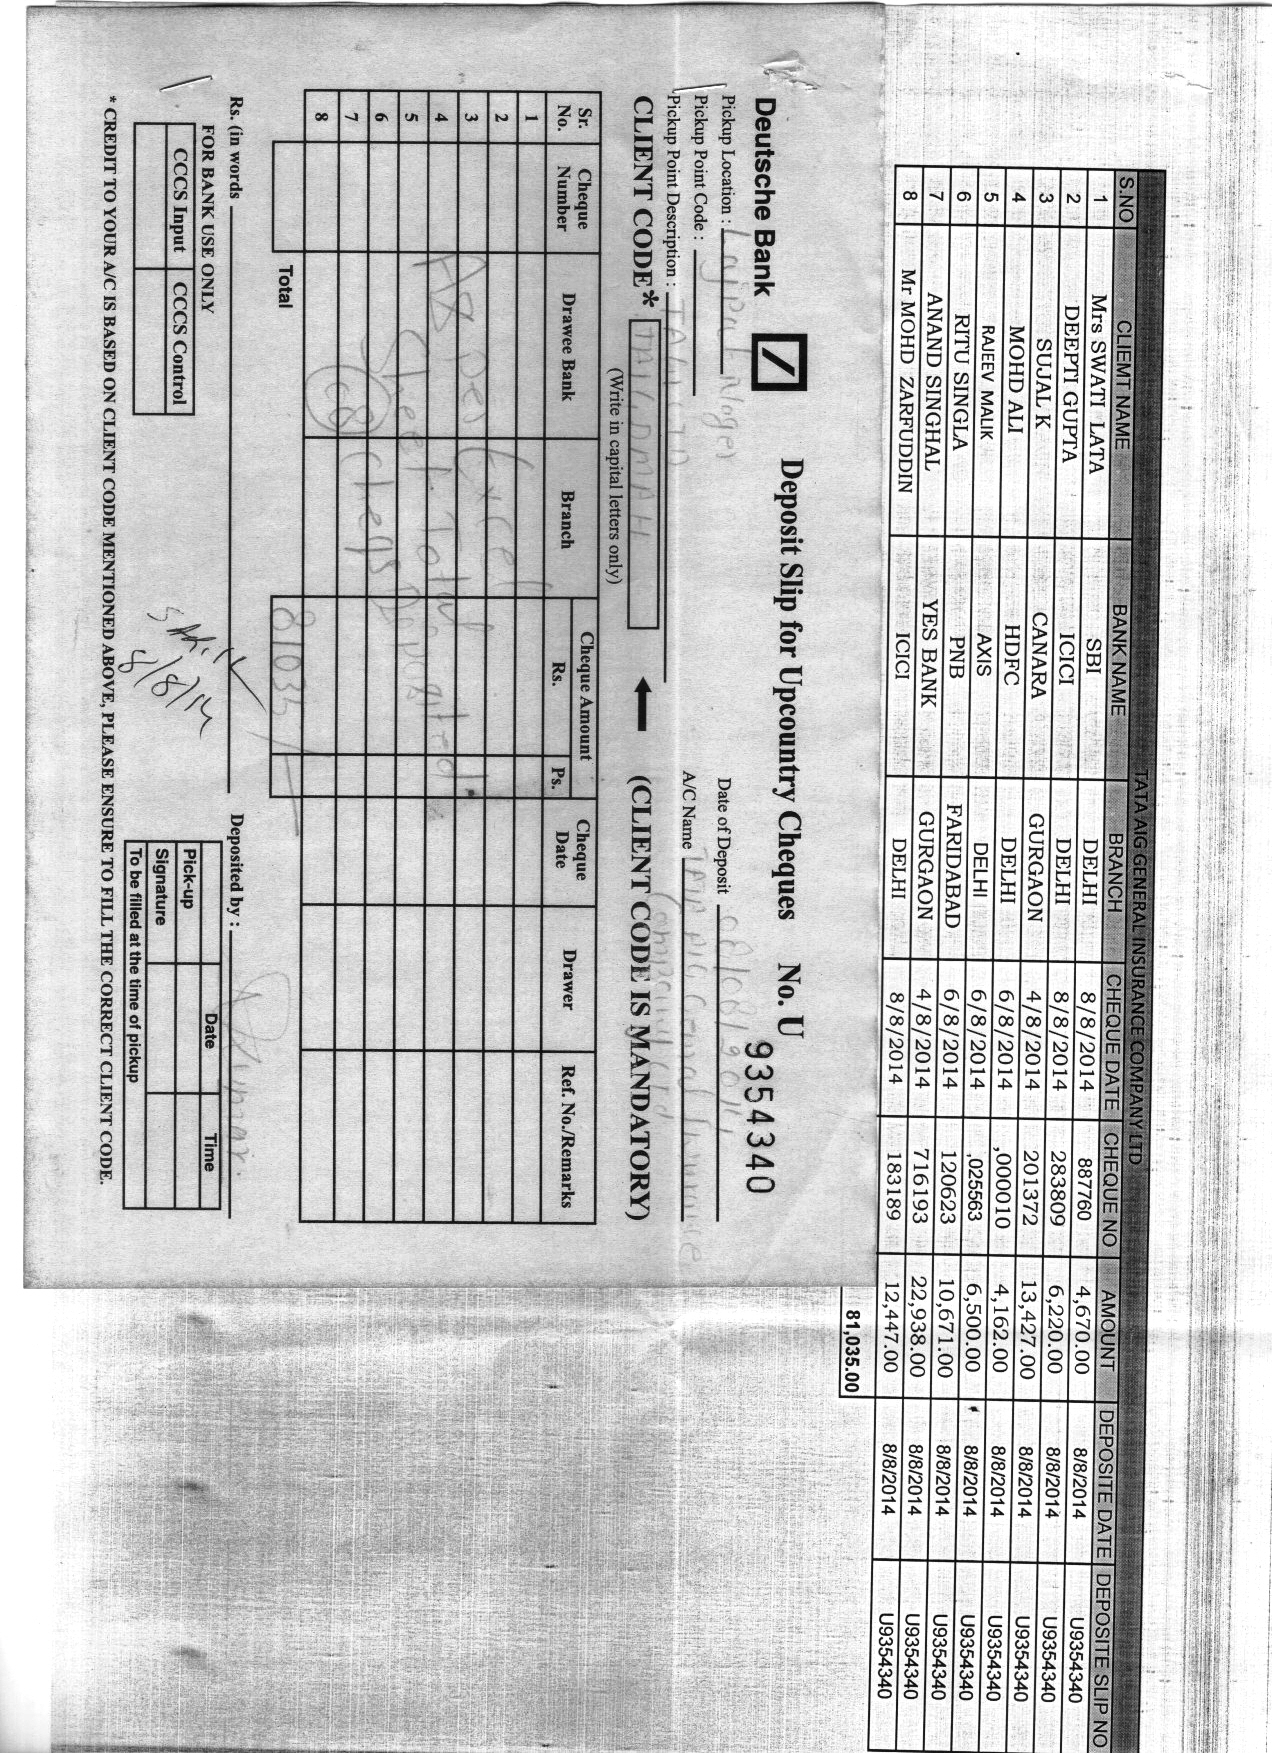 TATA AIG GENERAL INSURANCE COMPANY LTD
S.NO CLIEMT NAME BANK NAME BRANCH CHEQUE DATE CHEQUE NO AMOUNT DEPOSITE DATE DEPOSITE SLIP NO
1 Mrs SWATI LATA SBI DELHI 8/8/2014 887760 4,670.00 8/8/2014 U9354340
2 DEEPTI GUPTA ICICI DELHI 8/8/2014 283809 6,220.00 8/8/2014 U9354340
3 SUJAL K CANARA GURGAON 4/8/2014 201372 13,427.00 8/8/2014 U9354340
4 MOHD ALI HDFC DELHI 6/8/2014 ,000010 4,162.00 8/8/2014 U9354340
5 RAJEEV MALIK AXIS DELHI 6/8/2014 ,025563 6,500.00 8/8/2014 U9354340
6 RITU SINGLA PNB FARIDABAD 6/8/2014 120623 10,671.00 8/8/2014 U9354340
7 ANAND SINGHAL YES BANK GURGAON 4/8/2014 716193 22,938.00 8/8/2014 U9354340
8 Mr MOHD ZARFUDDIN ICICI DELHI 8/8/2014 183189 12,447.00 8/8/2014 U9354340
81,035.00
Deutsche Bank Deposit Slip for Upcountry Cheques No. U 9354340
Pickup Location : Lajpat Nager Date of Deposit 08/08/2014
Pickup Point Code : A/C Name TATA AIG General Insurance
Company Ltd
Pickup Point Description :
CLIENT CODE* (CLIENT CODE IS MANDATORY)
(Write in capital letters only)
Sr. No. Cheque Number Drawee Bank Branch Cheque Amount Rs. Ps. Cheque Date Drawer Ref. No./Remarks
1
2
3
4
5
6
7
8
As Per Excel
Sheet Total
08 Cheqs Deposited
Total 81035/-
Rs. (in words Deposited by : Kumar.
FOR BANK USE ONLY
CCCS Input CCCS Control
8/8/14
Date Time
Pick-up
Signature
To be filled at the time of pickup
* CREDIT TO YOUR A/C IS BASED ON CLIENT CODE MENTIONED ABOVE, PLEASE ENSURE TO FILL THE CORRECT CLIENT CODE.